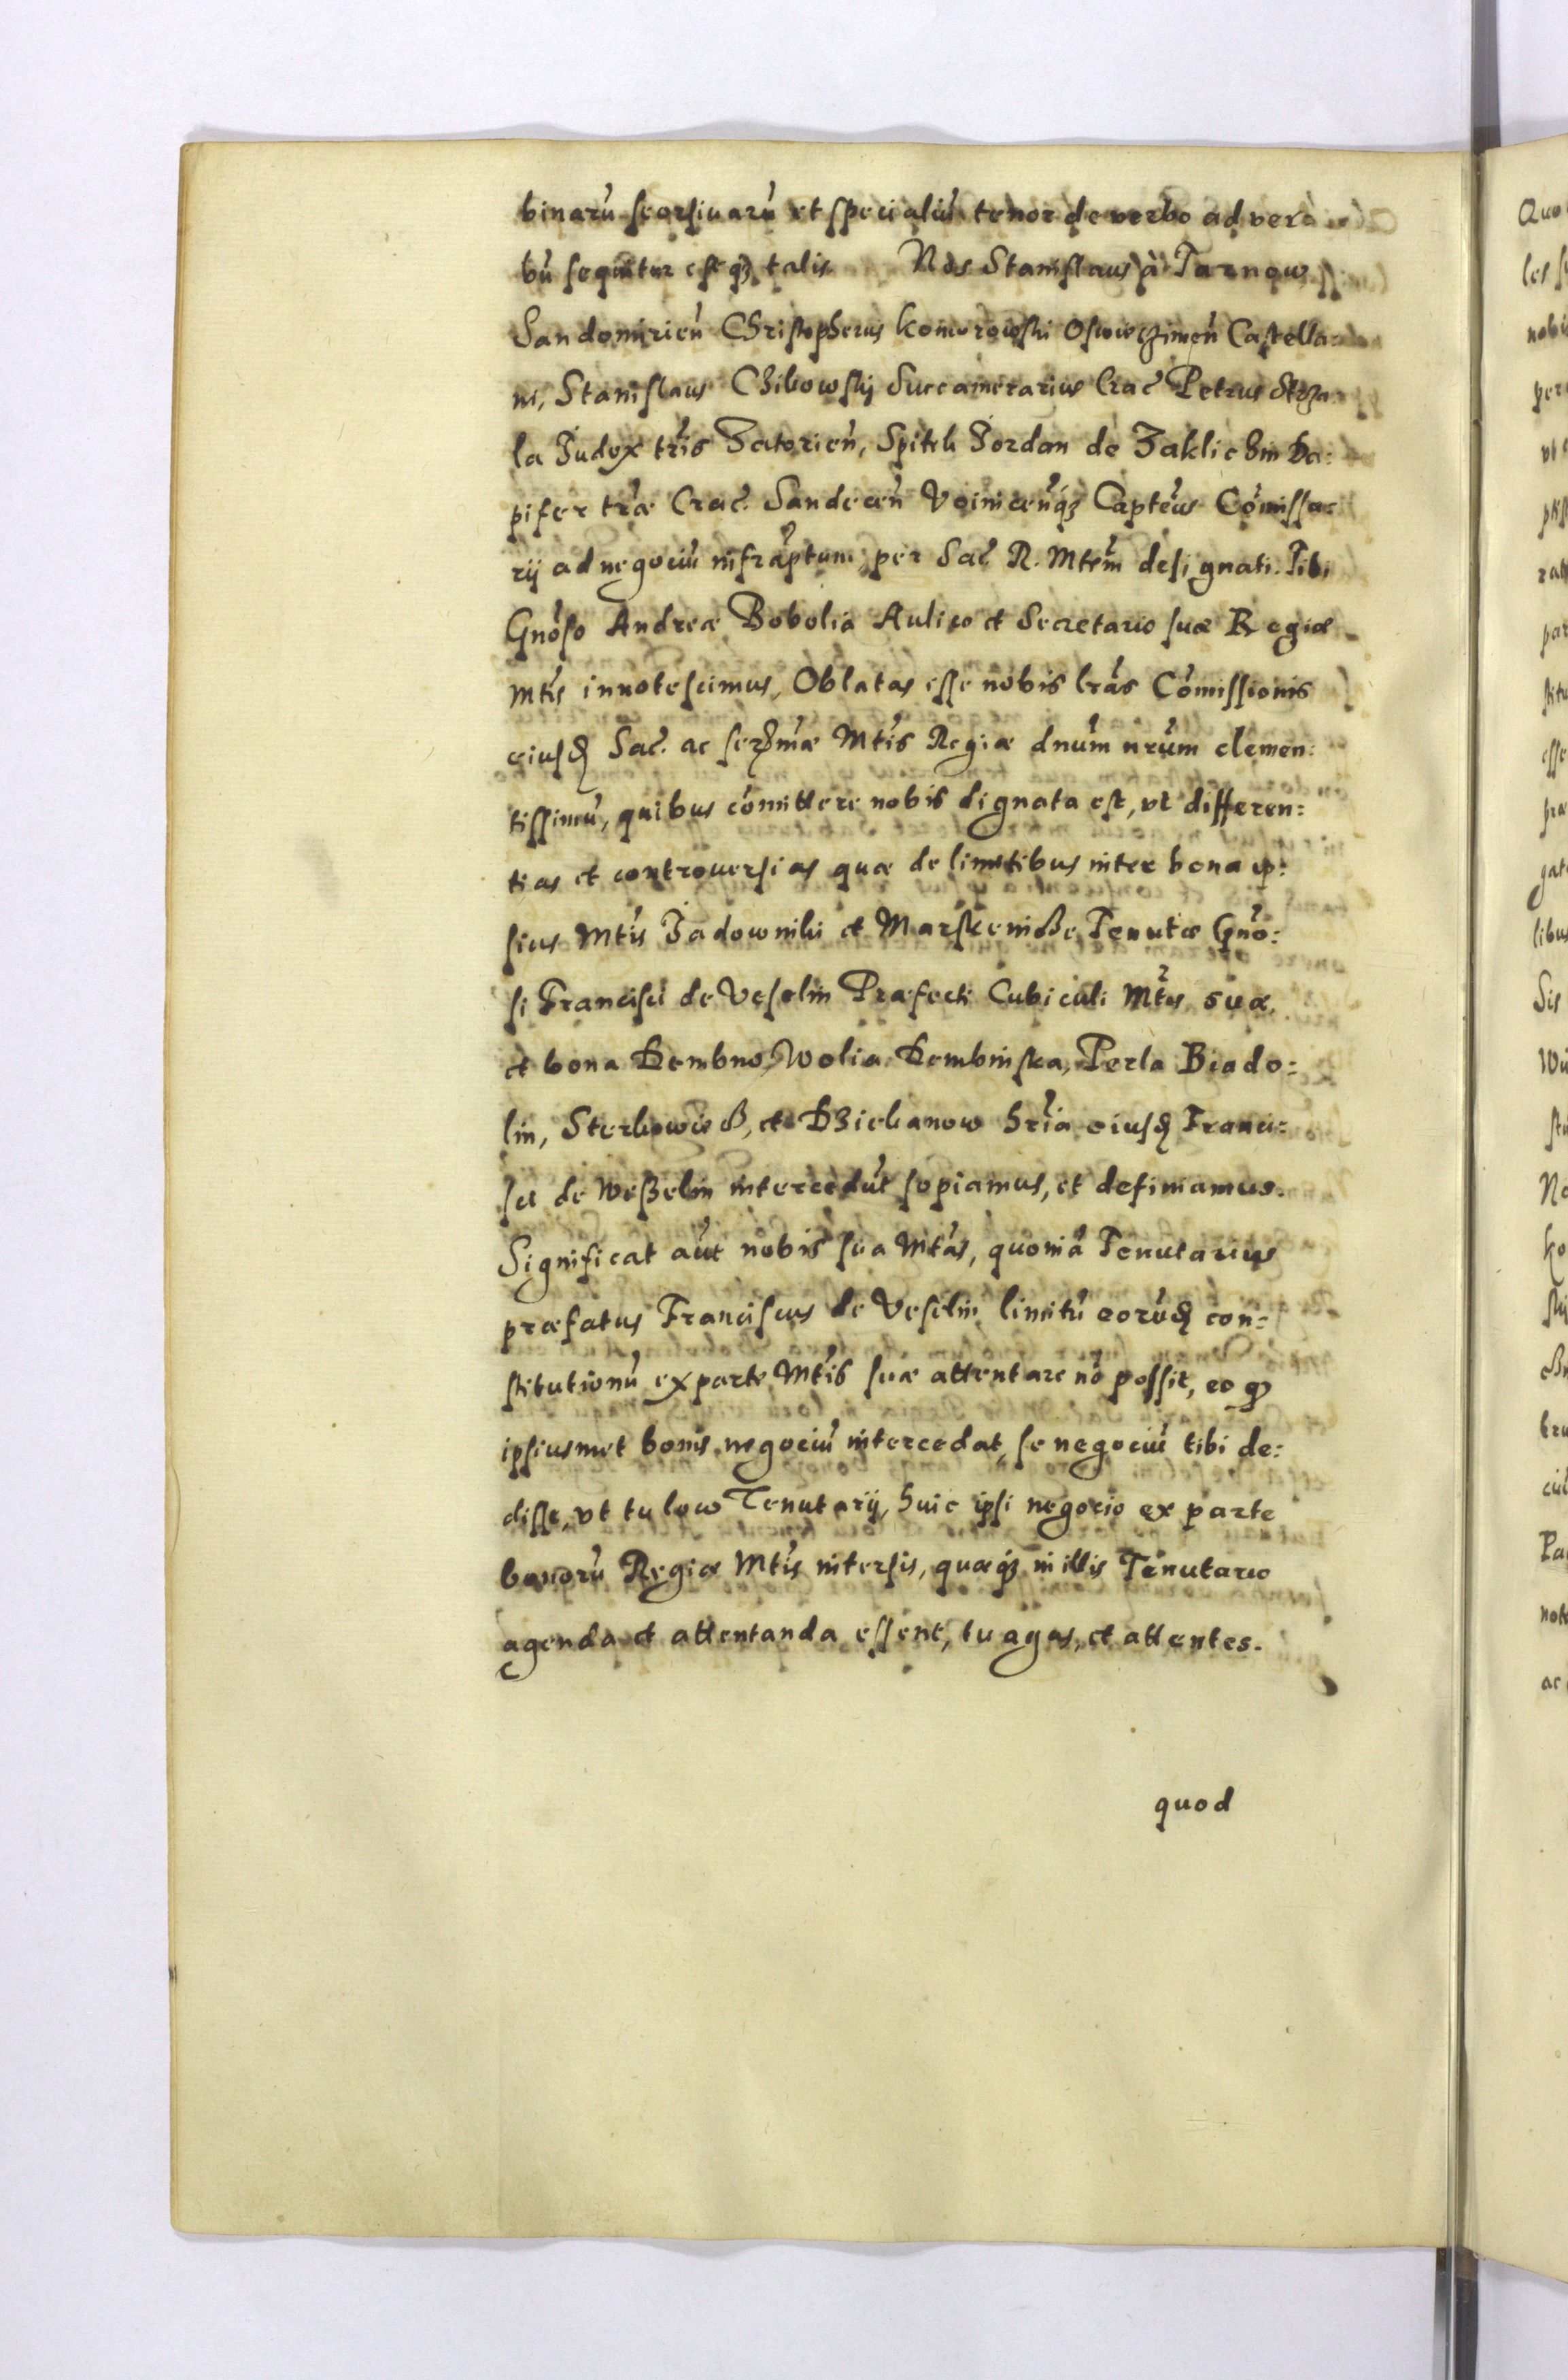 binarũ seorsiuarũ et specialiũ tenor de verbo ad ver
bũ sequitur estqȝ talis Nos Stanislaus à Tarnow
Sandomirień Christopherus Komorowski Oswieczimeń Castella
ni, Stanislaus Chikowskj Succamerarius Crač Petrus Strza
la Judex tris Zatorień, Spitek Jordan de Zaklichin Da:
pifer træ Crač. Sandeceń Voiniceńqȝ Capteus Comissa:
rij ad negociũ infraptum per Sac̃ R. Mtem designati. Tibi
Gnoso Andreæ Bobolia Aulico et Secretario suæ Regiæ
Mtis innotescimus, Oblatas esse nobis lras Comissionis
eiusd̃ Sac̃. ac serx̃mæ Mtis Regiæ dnum nrum clemen:
tissimũ, quibus comittere nobis dignata est, vt differen:
tias et controuersias quæ de limitibus inter bona ip:
sius Mtis Jadowniki et Maskenicze Tenutæ Gno:
si Francisci de Veselin Præfecti Cubiculi Mtis suæ,
et bona Dembno, Wolia Dembinska, Perla Biado:
lin, Sterkowiecz, et Dziekanow hria eiusd̃ Franci:
sci de Weßelin intercedũt sopiamus, et definiamus.
Significat aut nobis sua Mtas, quoniã Tenutarius
præfatus Franciscus de Veselin limitũ eorũd̃ con:
stitutionũ ex parte Mtis suæ attentare nõ possit, eo qȝ
ipsiusmet bonis negociũ intercedat, se negociũ tibi de:
disse, vt tu loco Tenutarij, huic ipsi negocio ex parte
bonorũ Regiæ Mtis intersis, quæqȝ in illis Tenutario
agenda et attentanda essent, tu agas, et attentes.
quod